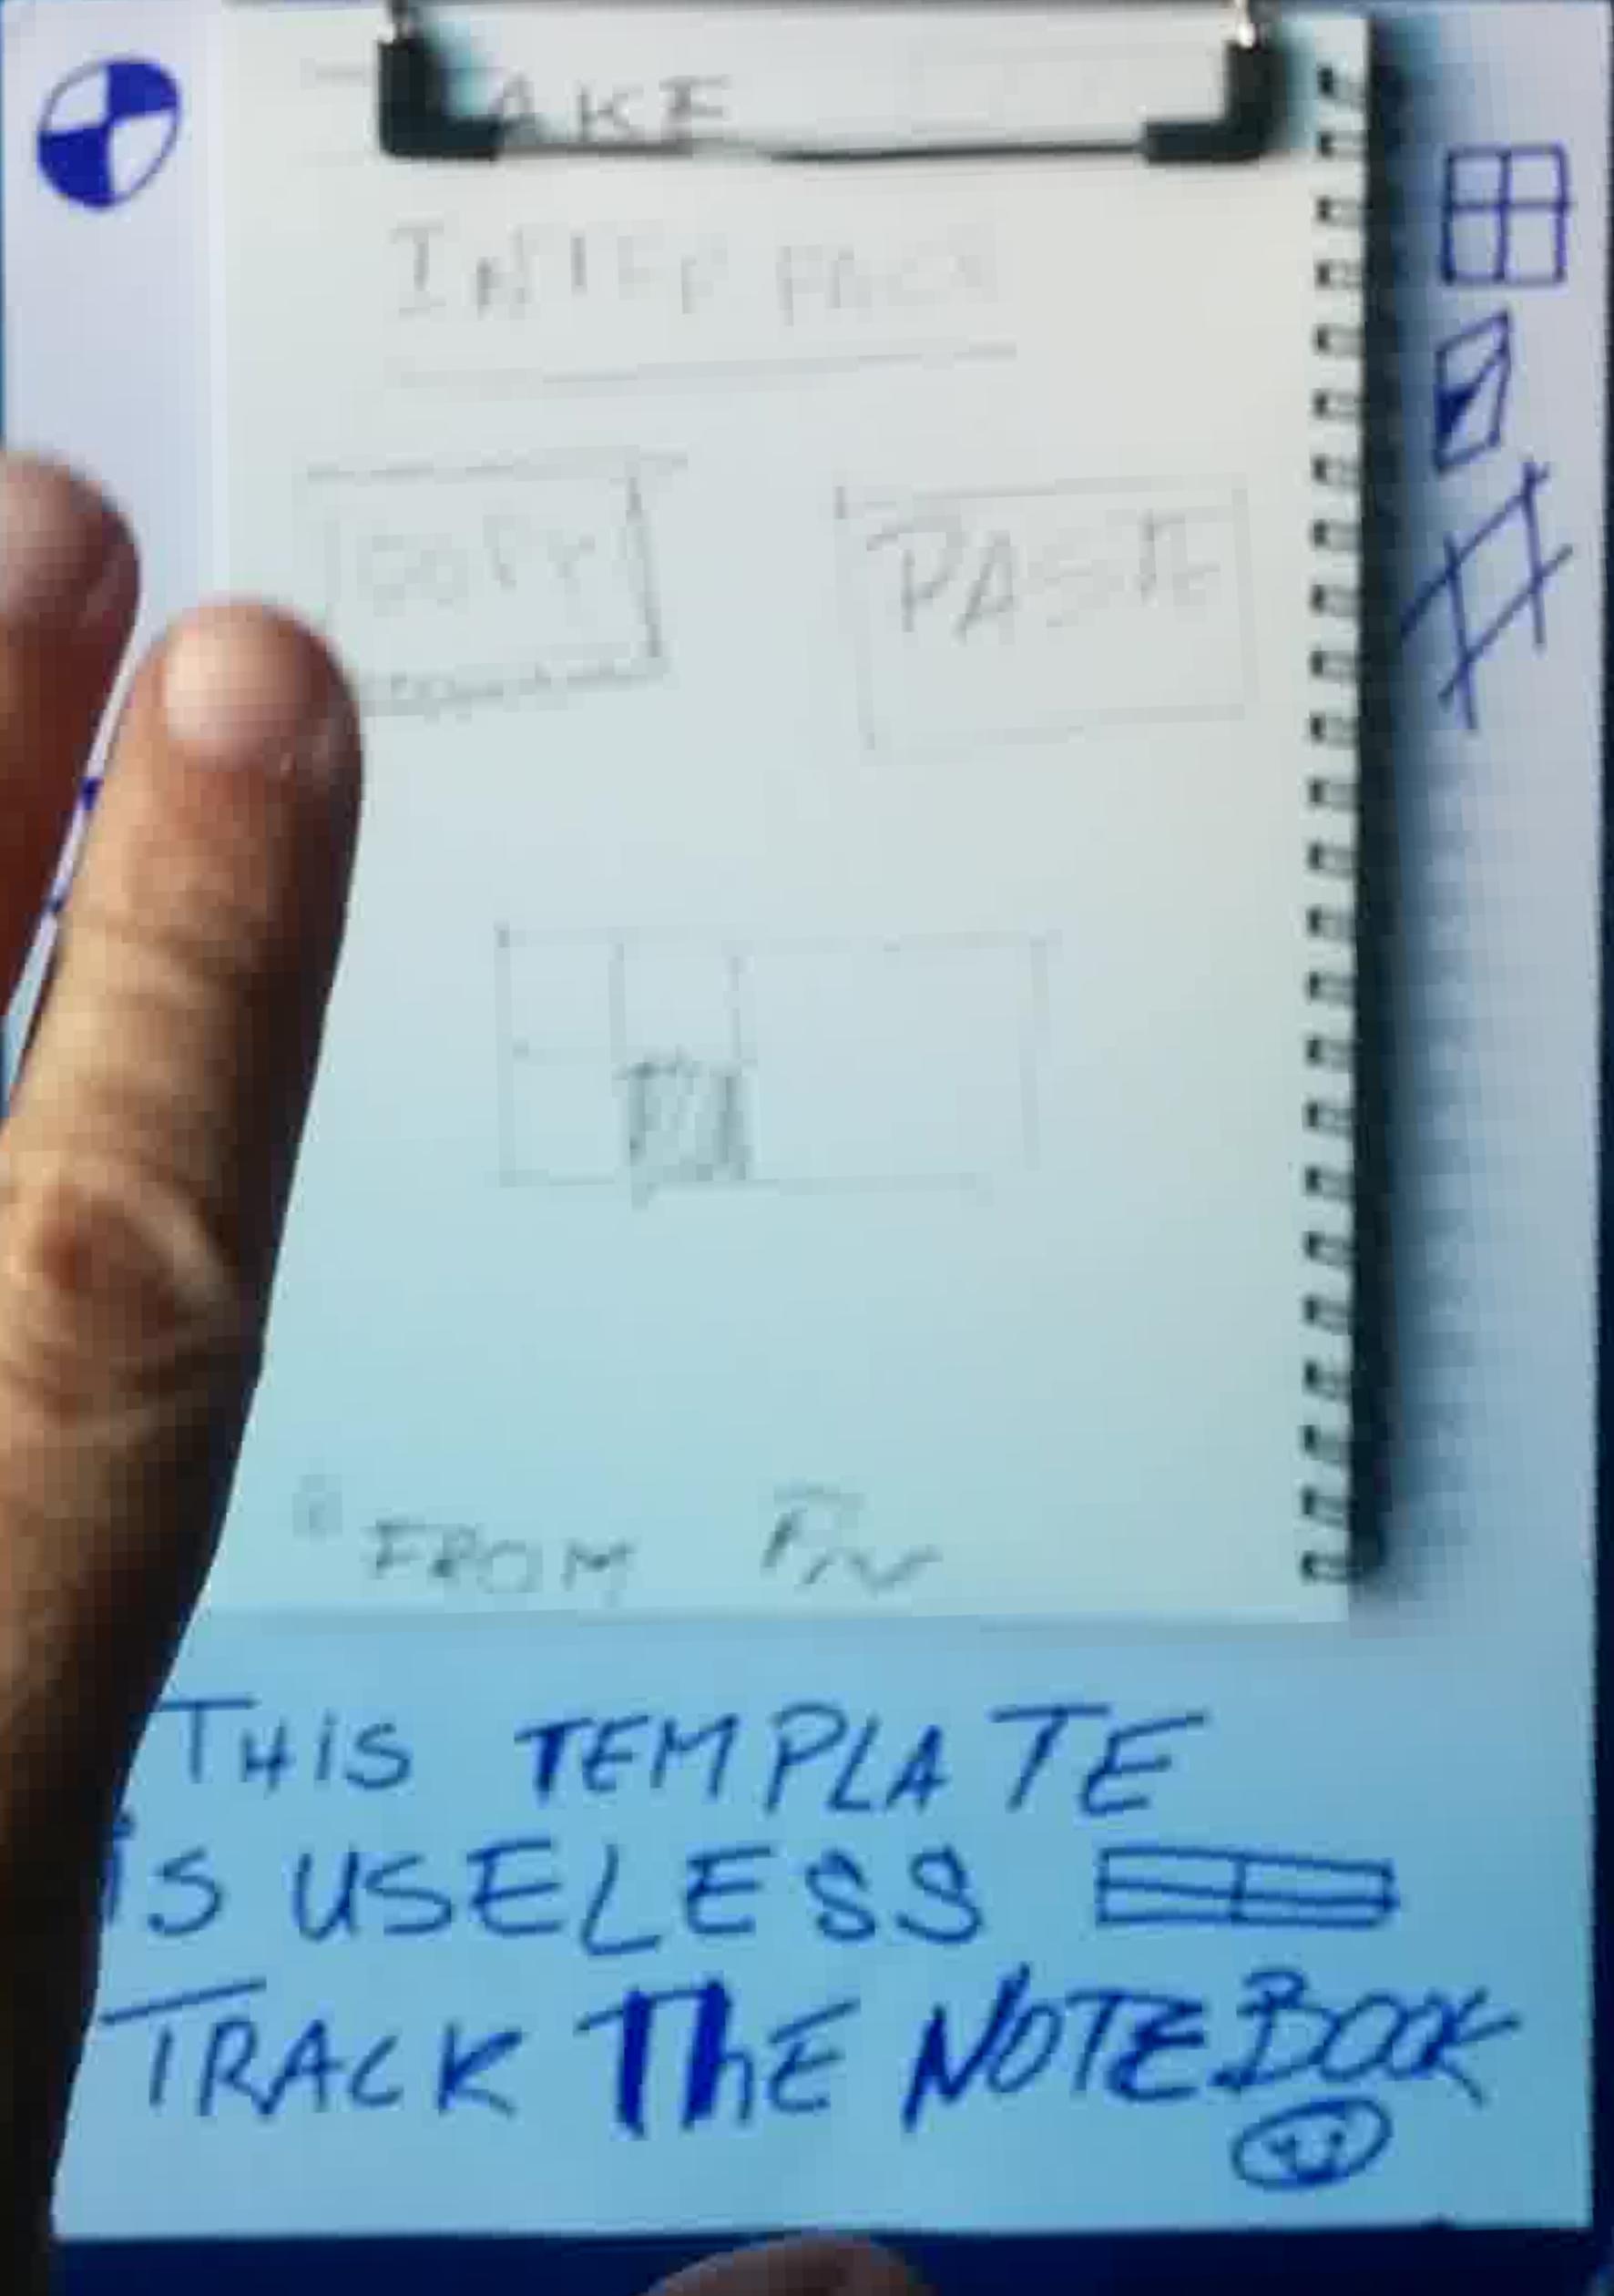 AKE
INTERFACE
COPY PASTE
FROM
THIS TEMPLATE
IS USELESS
TRACK ThE NOTEBOOK